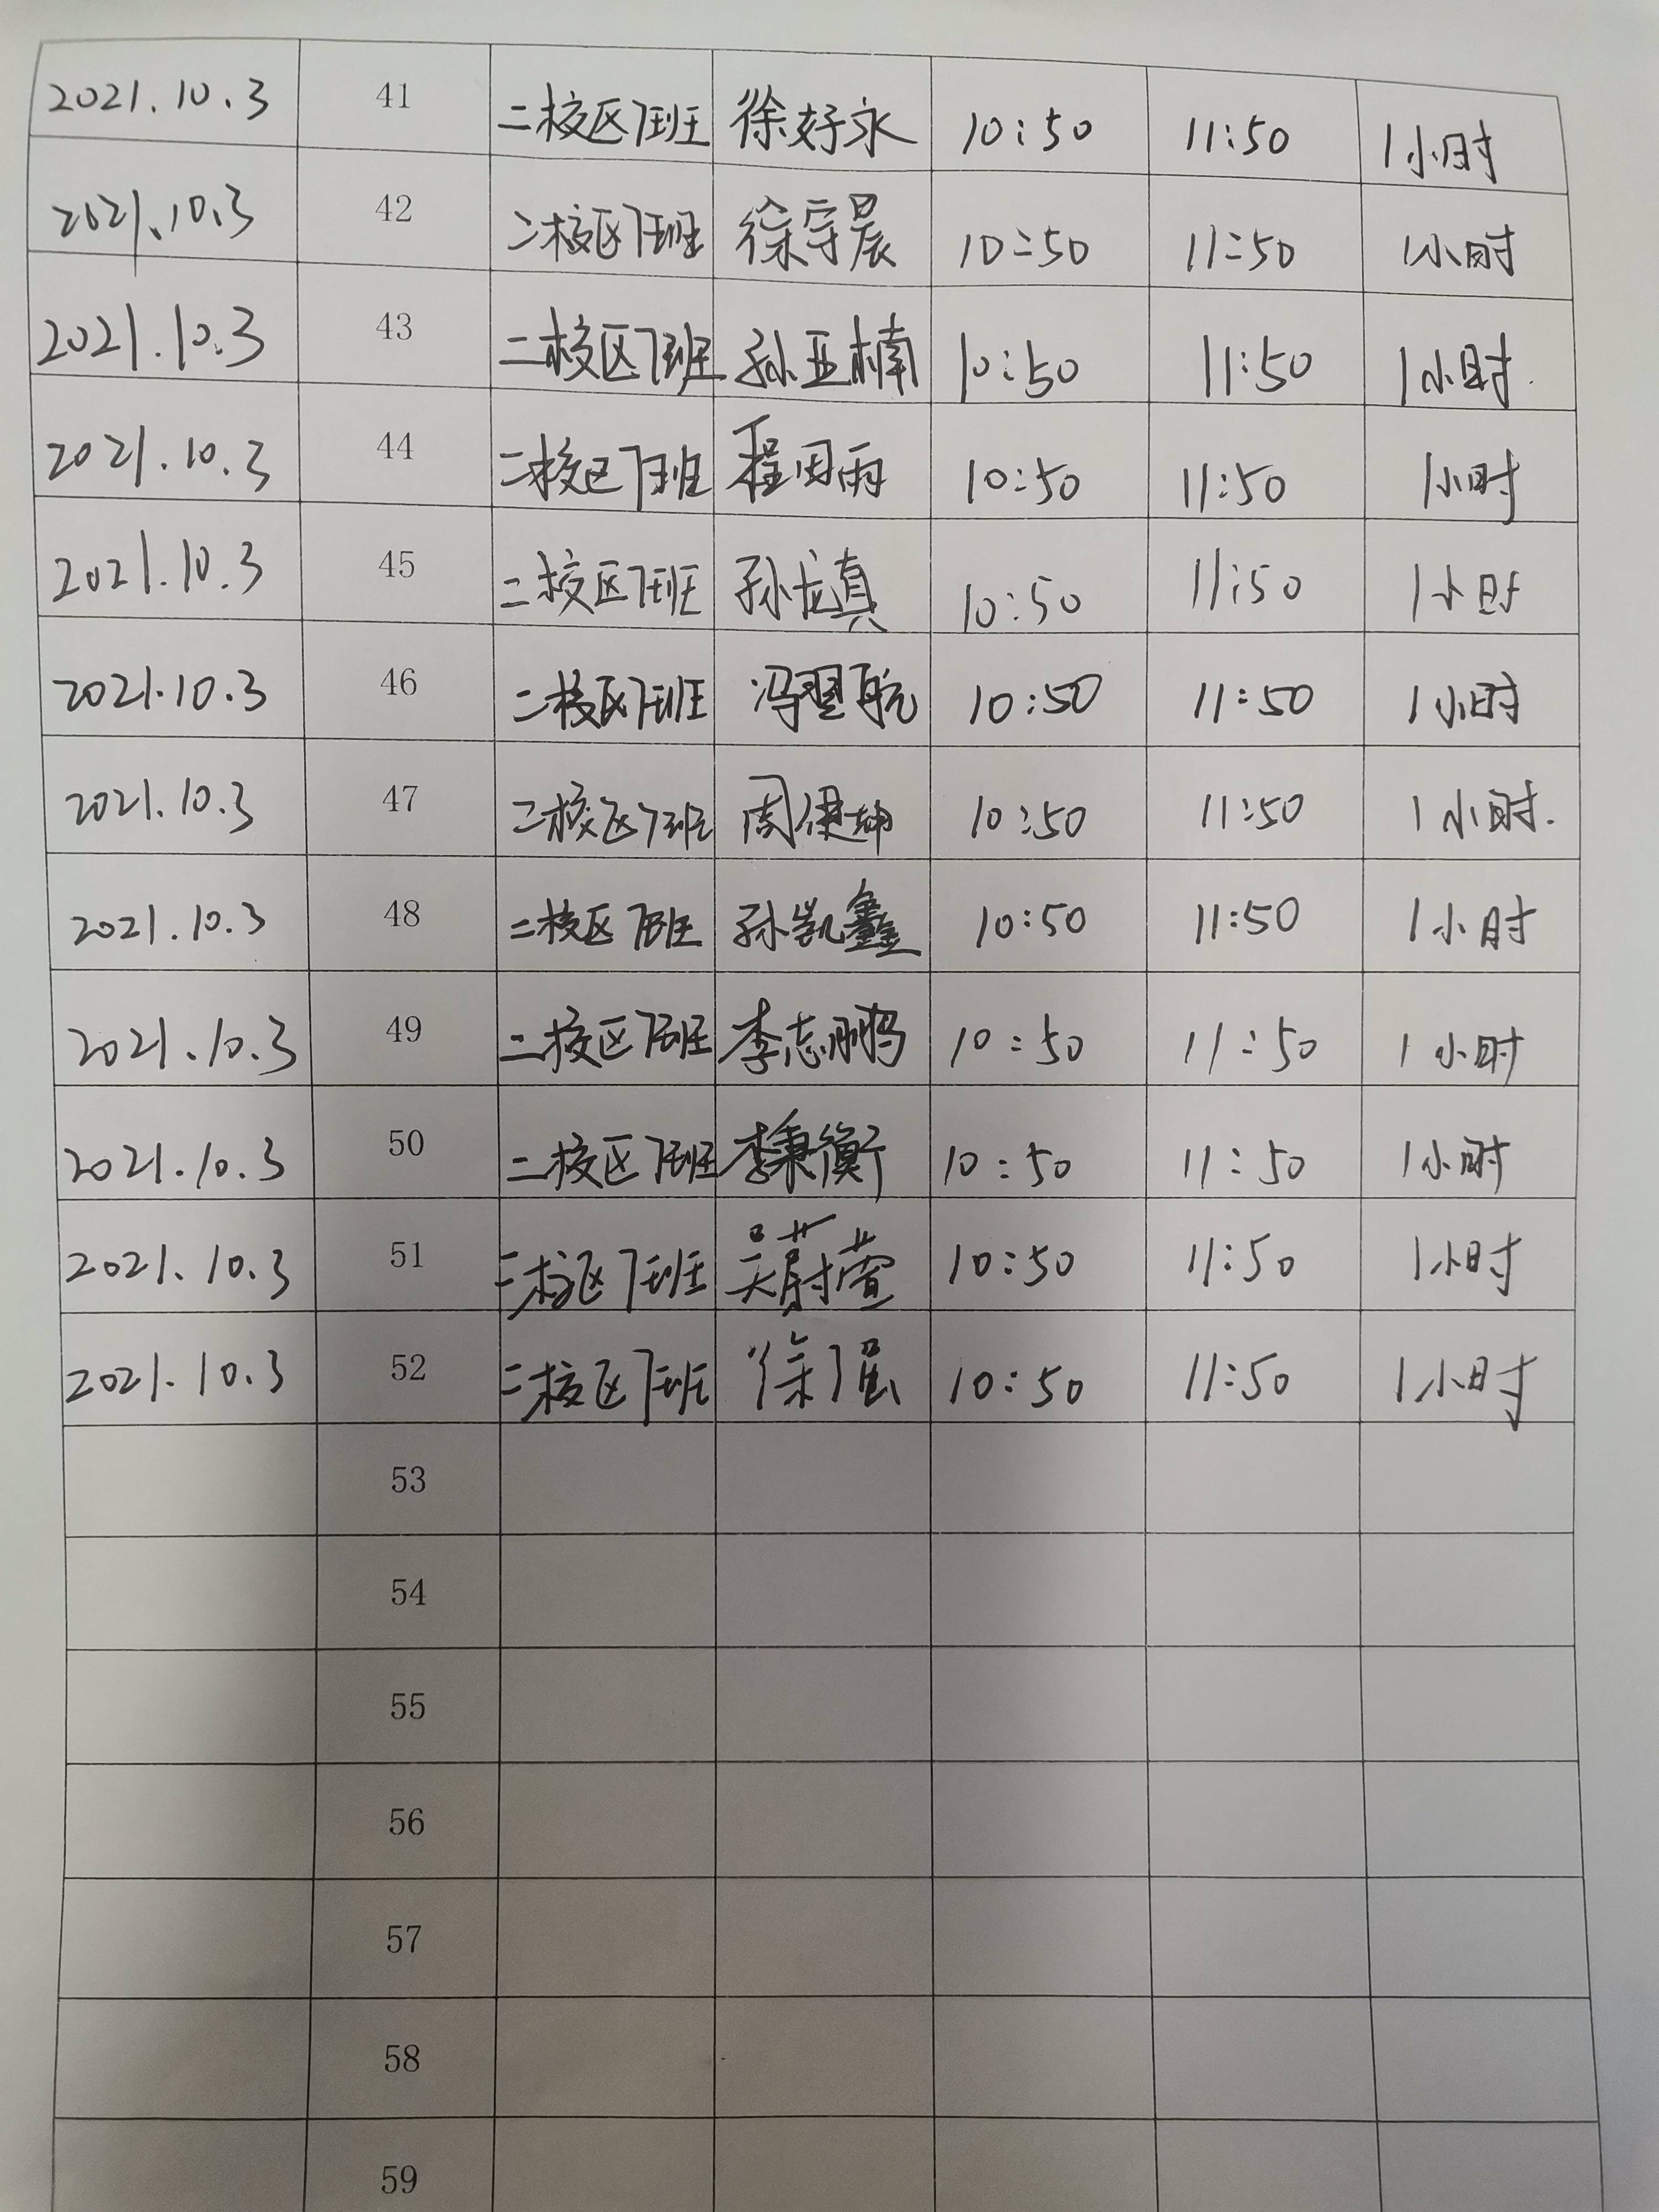 2021.10.3 41 二校区7班 徐好永 10:50 11:50 1小时
2021.10.3 42 二校区7班 徐守晨 10:50 11:50 1小时
2021.10.3 43 二校区7班 孙亚楠 10:50 11:50 1小时.
2021.10.3 44 二校区7班 10:50 11:50 1小时
2021.10.3 45 二校区7班 孙龙真 10:50 11:50 1小时
2021.10.3 46 二校区7班 冯翌航 10:50 11:50 1小时
2021.10.3 47 二校区7班 10:50 11:50 1小时.
2021.10.3 48 二校区7班 孙凯鑫 10:50 11:50 1小时
2021.10.3 49 二校区7班 李志鹏 10:50 11:50 1小时
2021.10.3 50 二校区7班 李秉衡 10:50 11:50 1小时
2021.10.3 51 二校区7班 吴蔚萱 10:50 11:50 1小时
2021.10.3 52 二校区7班 徐强 10:50 11:50 1小时
53
54
55
56
57
58
59